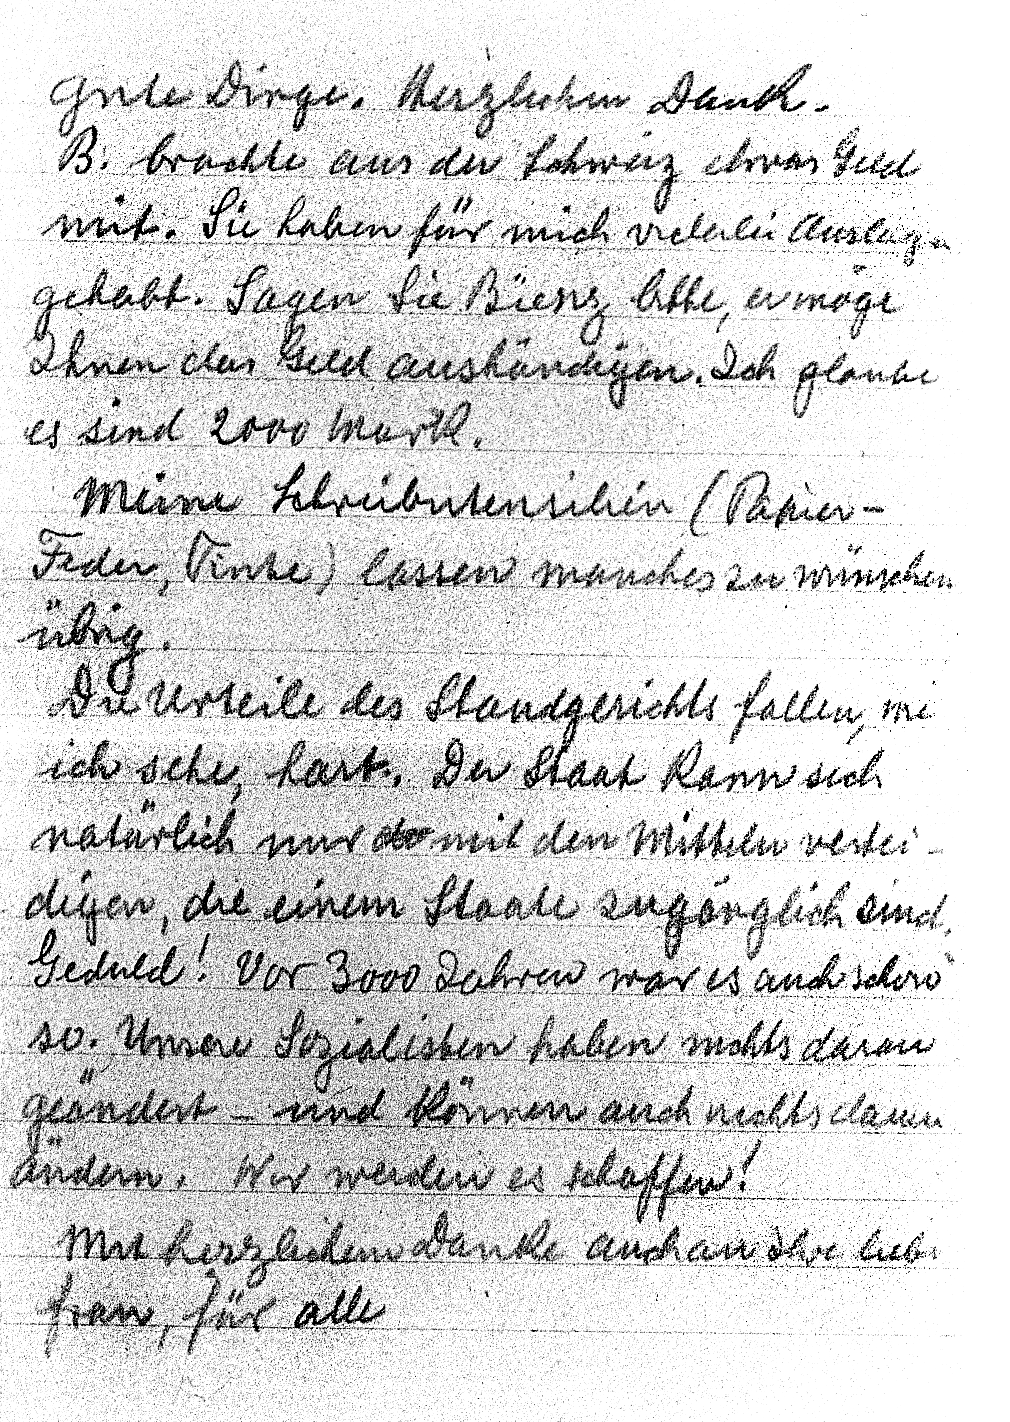 Gute Dinge. Herzlichen Dank.
B. brachte aus der Schweiz etwas Geld
mit. Sie haben für mich vielerlei Auslagen
gehabt. Sagen Sie Bienz bitte, er möge
Ihnen das Geld aushändigen. Ich glaube
es sind 2000 Mark.
Meine Schreibutensilien (Papier-
Feder, Tinte) lassen manches zu wünschen
übrig.
Die Urteile des Standgerichts fallen, wie
ich sehe, hart. Der Staat kann sich
natürlich nur mit den Mitteln vertei-
digen, die einem Staate zugänglich sind.
Geduld! Vor 3000 Jahren war es auch schon
so. Unsere Sozialisten haben nichts daran
geändert – und können auch nichts daran
ändern. Wir werden es schaffen!
Mit herzlichem Danke auch an Ihre liebe
Frau, für alle